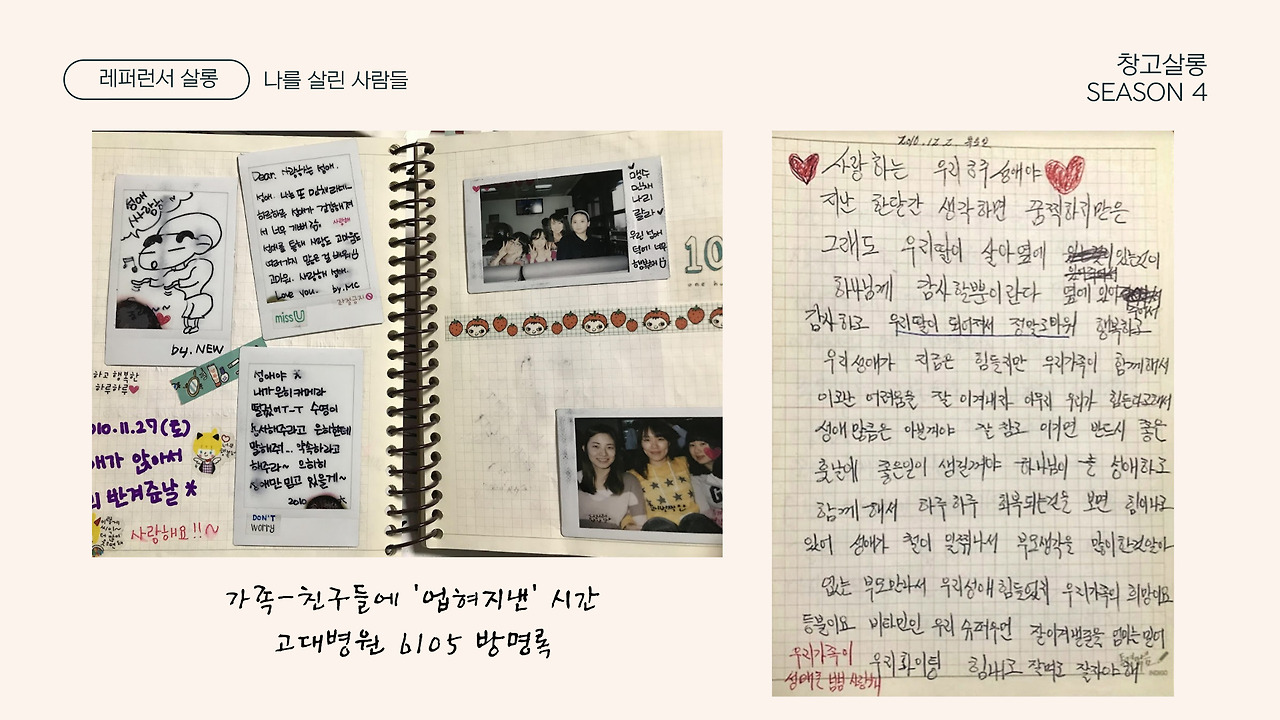 레퍼런서 살롱
나를 살린 사람들
창고살롱
SEASON 4
성애
사랑해
by. NEW
Dear. 사랑하는 성애.
성애. 나는 또
서 너무 기뻐
사랑해
고마워. 사랑해 성애.
Love you. by.MC
miss U
하고 행복한
하루하루
010.11.27(토)
애가 앉아서
반겨준날
사랑해요!!~
성애야
내가 은희카메라
떨궜어 T-T 수명이
해주라고 은희한테
말해줘!... 약속하라고
해주라~ 은희히
성애만 믿고 있을게~
2010
DON'T
worry
맹수
나리
랄라
우린 성애
덕에 너무
행복해
10
2010. 12. 2. 목요일
사랑하는 우리 공주 성애야
지난 한달간 생각하면 끔찍하지만은
그래도 우리딸이 살아 옆에 있는것이
하나님께 감사할뿐이란다 옆에 있어
감사하고 우리딸이 되어줘서 정말고마워 행복하고
우리성애가 지금은 힘들지만 우리가족이 함께해서
이모든 어려움을 잘 이겨내자 아무리 우리가 힘든다고해서
성애만큼은 아닐꺼야 잘 참고 이기면 반드시 좋은
훗날에 좋은일이 생길꺼야 하나님이 늘 성애하고
함께 해서 하루하루 회복되는것을 보면 힘이나고
있어 성애가 철이 일찍나서 부모생각을 많이한것알아
없는 부모만나서 우리성애 힘들었지 우리가족의 희망이요
등불이요 비타민인 우리 슈퍼우먼 잘이겨낼줄을 엄마는 믿어
우리가족이
우리화이팅 힘내고 잘먹고 잘자야 해
성애를 사랑해
가족-친구들에 '업혀지낸' 시간
고대병원 6105 방명록